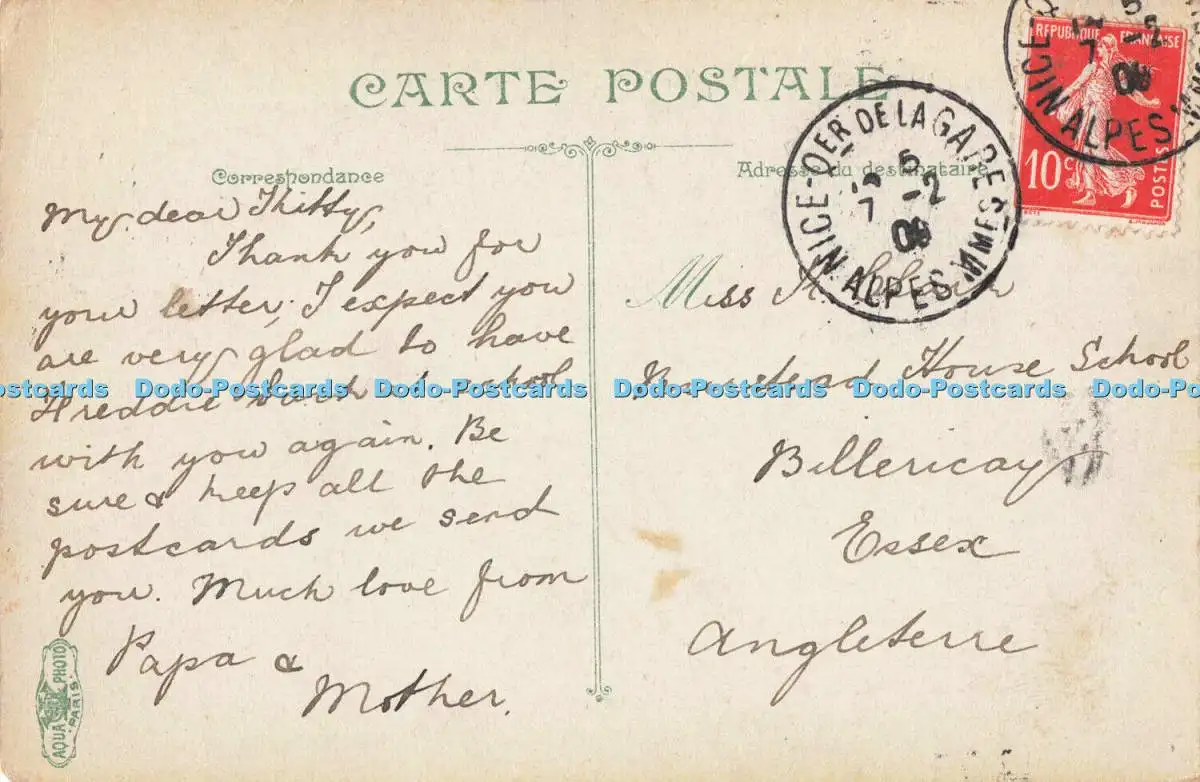 CARTE POSTALE
Correspondance
My dear Thitty,
Thank you for
your letter, I expect you
are very glad to have
Freddie back at school
with you again. Be
sure & keep all the
postcards we send
you. Much love from
Papa &
Mother.
AQUA PHOTO
PARIS
Adresse du destinataire
Miss
House School
Billericay
Essex
Angleterre
NICE DE LA GARE
ALPES MMES
5
7 -2
REPUBLIQUE FRANÇAISE
10c
POSTES
NICE
ALPES MMES
5
7 -2
Postcards Dodo-Postcards Dodo-Postcards Dodo-Postcards Dodo-Postcards Dodo-Post